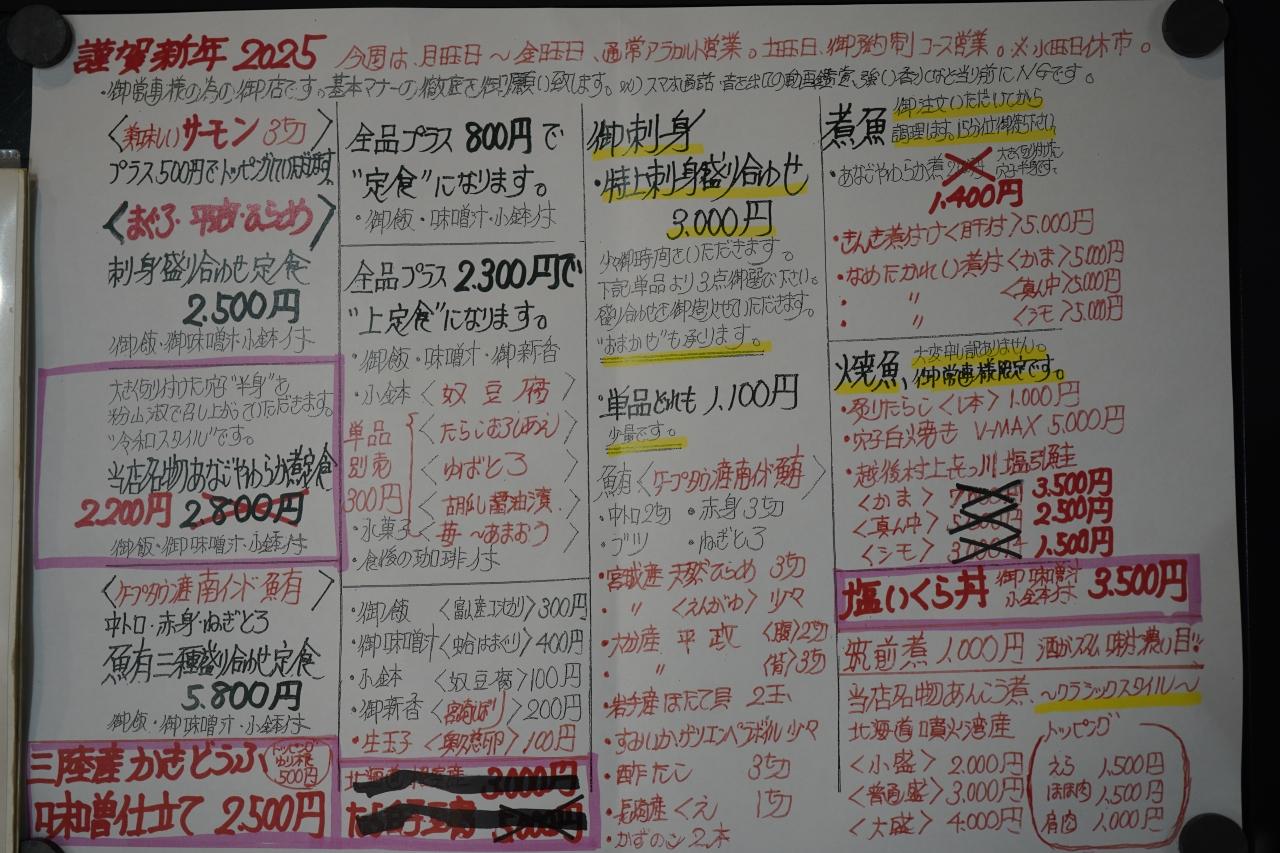 謹賀新年 2025 今週は、月曜日～金曜日、通常アラカルト営業。土曜日、御予約制コース営業。※水曜日休市。
・御常連様の為の御店です。基本マナーの徹底を御願い致します。 スマホ通話・音を出しての動画鑑賞、強い香りなど当り前にNGです。
〈美味しいサーモン3切〉
プラス500円でトッピングしていただけます。
〈まぐろ・平政・ひらめ〉
刺身盛り合わせ定食
2.500円
御飯・御味噌汁・小鉢付
大きく切り付けた穴子"半身"を
粉山椒で召し上がっていただきます。
"令和スタイル"です。
当店名物あなごやわらか煮定食
2.200円 2.800円
御飯・御味噌汁・小鉢付
〈ケープタウン産南インド鮪〉
中トロ・赤身・ねぎとろ
鮪三種盛り合わせ定食
5.800円
御飯・御味噌汁・小鉢付
三陸産かきどうふ
トッピング
500円
味噌仕立て 2.500円
全品プラス800円で
"定食"になります。
・御飯・味噌汁・小鉢付
全品プラス2.300円で
"上定食"になります。
・御飯・味噌汁・御新香
・小鉢〈奴豆腐〉
単品別売300円
〈たらこむろしあえ〉
〈ゆばとろ〉
〈胡麻し醤油漬〉
・水菓子〈苺～あまおう〉
・食後の珈琲付
・御飯〈富山産コシヒカリ〉300円
・御味噌汁〈蛤はまぐり〉400円
・小鉢〈奴豆腐〉100円
・御新香〈宮崎ぼり〉200円
・生玉子〈奥久慈卵〉100円
北海道 3.000円
豆腐
御刺身
・特上刺身盛り合わせ
3.000円
少々御時間をいただきます。
下記単品より3点御選び下さい。
盛り合わせを御造りさせていただきます。
"おまかせ"も承ります。
単品どれも1.100円
少量です。
鮪〈ケープタウン産南インド鮪〉
・中トロ2切 ・赤身3切
・ブツ ・ねぎとろ
・宮城産 天然ひらめ 3切
・〃〈えんがわ〉少々
・大分産 平政〈腹〉2切
〃〈背〉3切
・岩手産ほたて貝 2玉
・すみいかゲソエンペラボイル少々
・酢たこ 3切
・長崎産くえ 1切
・かずのこ 2本
煮魚
御注文いただいてから
調理します。15分位御待ち下さい。
・あなごやわらか煮
大きく切り付けた
穴子半身です。
1.400円
・きんき煮付け〈肝付〉5.000円
・なめたかれい煮付〈かま〉5.000円
・〃〈真ん中〉5.000円
・〃〈シモ〉5.000円
焼魚、
大変申し訳ありません。
御常連様限定です。
・炙りたらこ〈1本〉1.000円
・穴子白焼き V-MAX 5.000円
・越後村上 川 塩引鮭
〈かま〉3.500円
〈真ん中〉2.500円
〈シモ〉1.500円
塩いくら丼 御味噌汁 小鉢付 3.500円
筑前煮 1.000円 酒がススム味付濃い目!!
当店名物あんこう煮 ～クラシックスタイル～
北海道噴火湾産
〈小盛〉2.000円
〈普通盛〉3.000円
〈大盛〉4.000円
トッピング
えら 1.500円
ほほ肉 1.500円
肩肉 1.000円